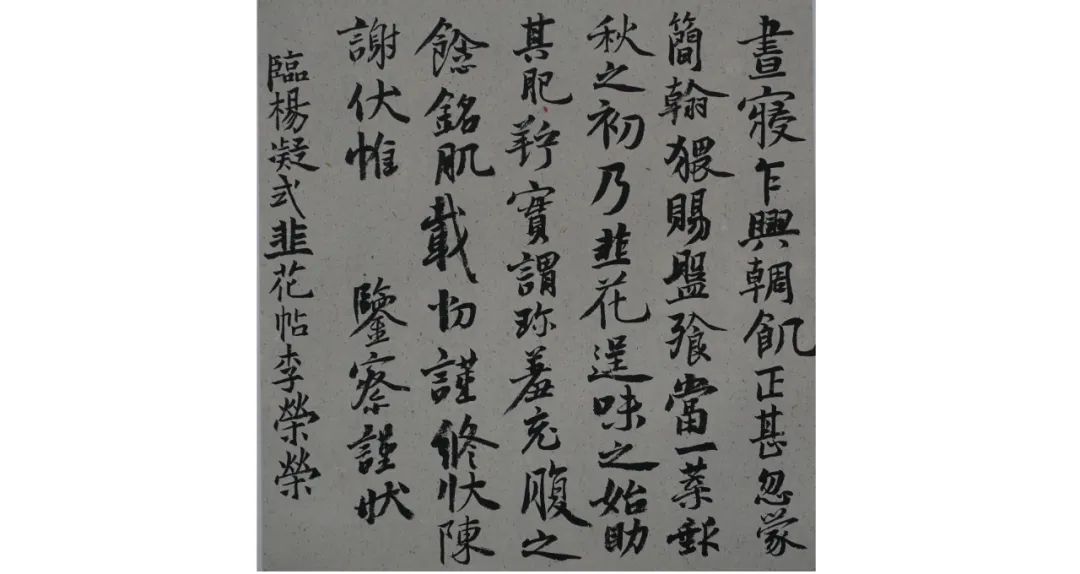 晝寢乍興輖飢正甚忽蒙
簡翰猥賜盤飧當一葉報
秋之初乃韭花逞味之始助
其肥羜實謂珎羞充腹之
餘銘肌載切謹修狀陳
謝伏惟 鑒察謹狀
臨楊凝式韭花帖李榮榮